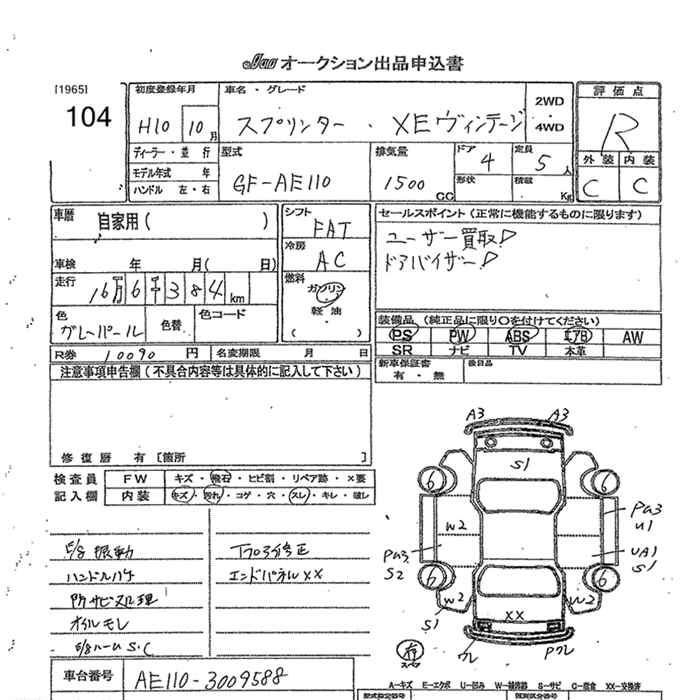 Jaa オークション出品申込書
[1965]
104
初度登録年月
H10 10月
車名・グレード
スプリンター・XEヴィンテージ
2WD
4WD
評価点
R
外装 内装
C C
ディーラー・並行
モデル年式 年
ハンドル 左・右
型式
GF-AE110
排気量
1500 CC
ドア 4
形状
定員 5人
積載 Kg
車歴 自家用( )
車検 年 月( 日)
走行 16万6千384km
色 グレーパール
色替
色コード
シフト FAT
冷房 AC
燃料
ガソリン
・
軽油
( )
セールスポイント (正常に機能するものに限ります)
ユーザー買取!
ドアバイザー!
装備品 (純正品に限り〇を付けてください)
PS PW ABS エアB AW
SR ナビ TV 本革
新車保証書
有・無
後日品
R券 10090円 名変期限 月 日
注意事項申告欄(不具合内容等は具体的に記入して下さい)
修復歴 有 [箇所 ]
検査員 FW キズ・飛石・ヒビ割・リペア跡・×要
記入欄 内装 キズ・汚れ・コゲ・穴・スレ・キレ・破レ
E/g振動
ハンドルハゲ
所々サビ処理
オイルモレ
E/gルームS.C
下廻り修正
エンドパネルXX
車台番号 AE110-3009588
A3 A3
S1
6 6
W2
Pa3
U1
Pa3
S2
UA1
S1
6 6
W2 W2
S1 S1
XX
ワレ Pワレ
有
スペア
A-キズ E-エクボ U-凹み W-補修跡 S-サビ C-腐食 XX-交換済